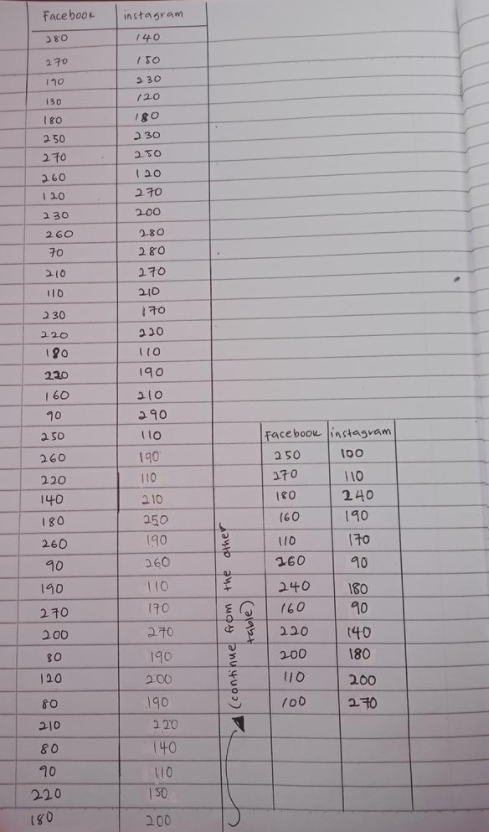 Facebook instagram
280 140
270 150
190 230
130 120
180 180
250 230
270 250
260 120
120 270
230 200
260 280
70 280
210 270
110 210
230 170
220 220
180 110
220 190
160 210
90 290
250 110
260 190
220 110
140 210
180 250
260 190
90 260
190 110
270 170
200 270
80 190
120 200
80 190
210 220
80 140
90 110
220 150
180 200
(continue from the other
table)
Facebook instagram
250 100
270 110
180 240
160 190
110 170
260 90
240 180
160 90
220 140
200 180
110 200
100 270